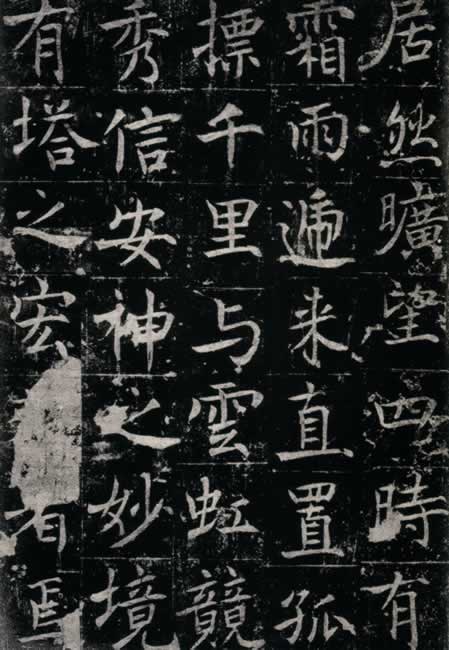 居然曠望四時有
霜雨遞来直置孤
摽千里与雲虹競
秀信安神之妙境
有塔之宏者焉